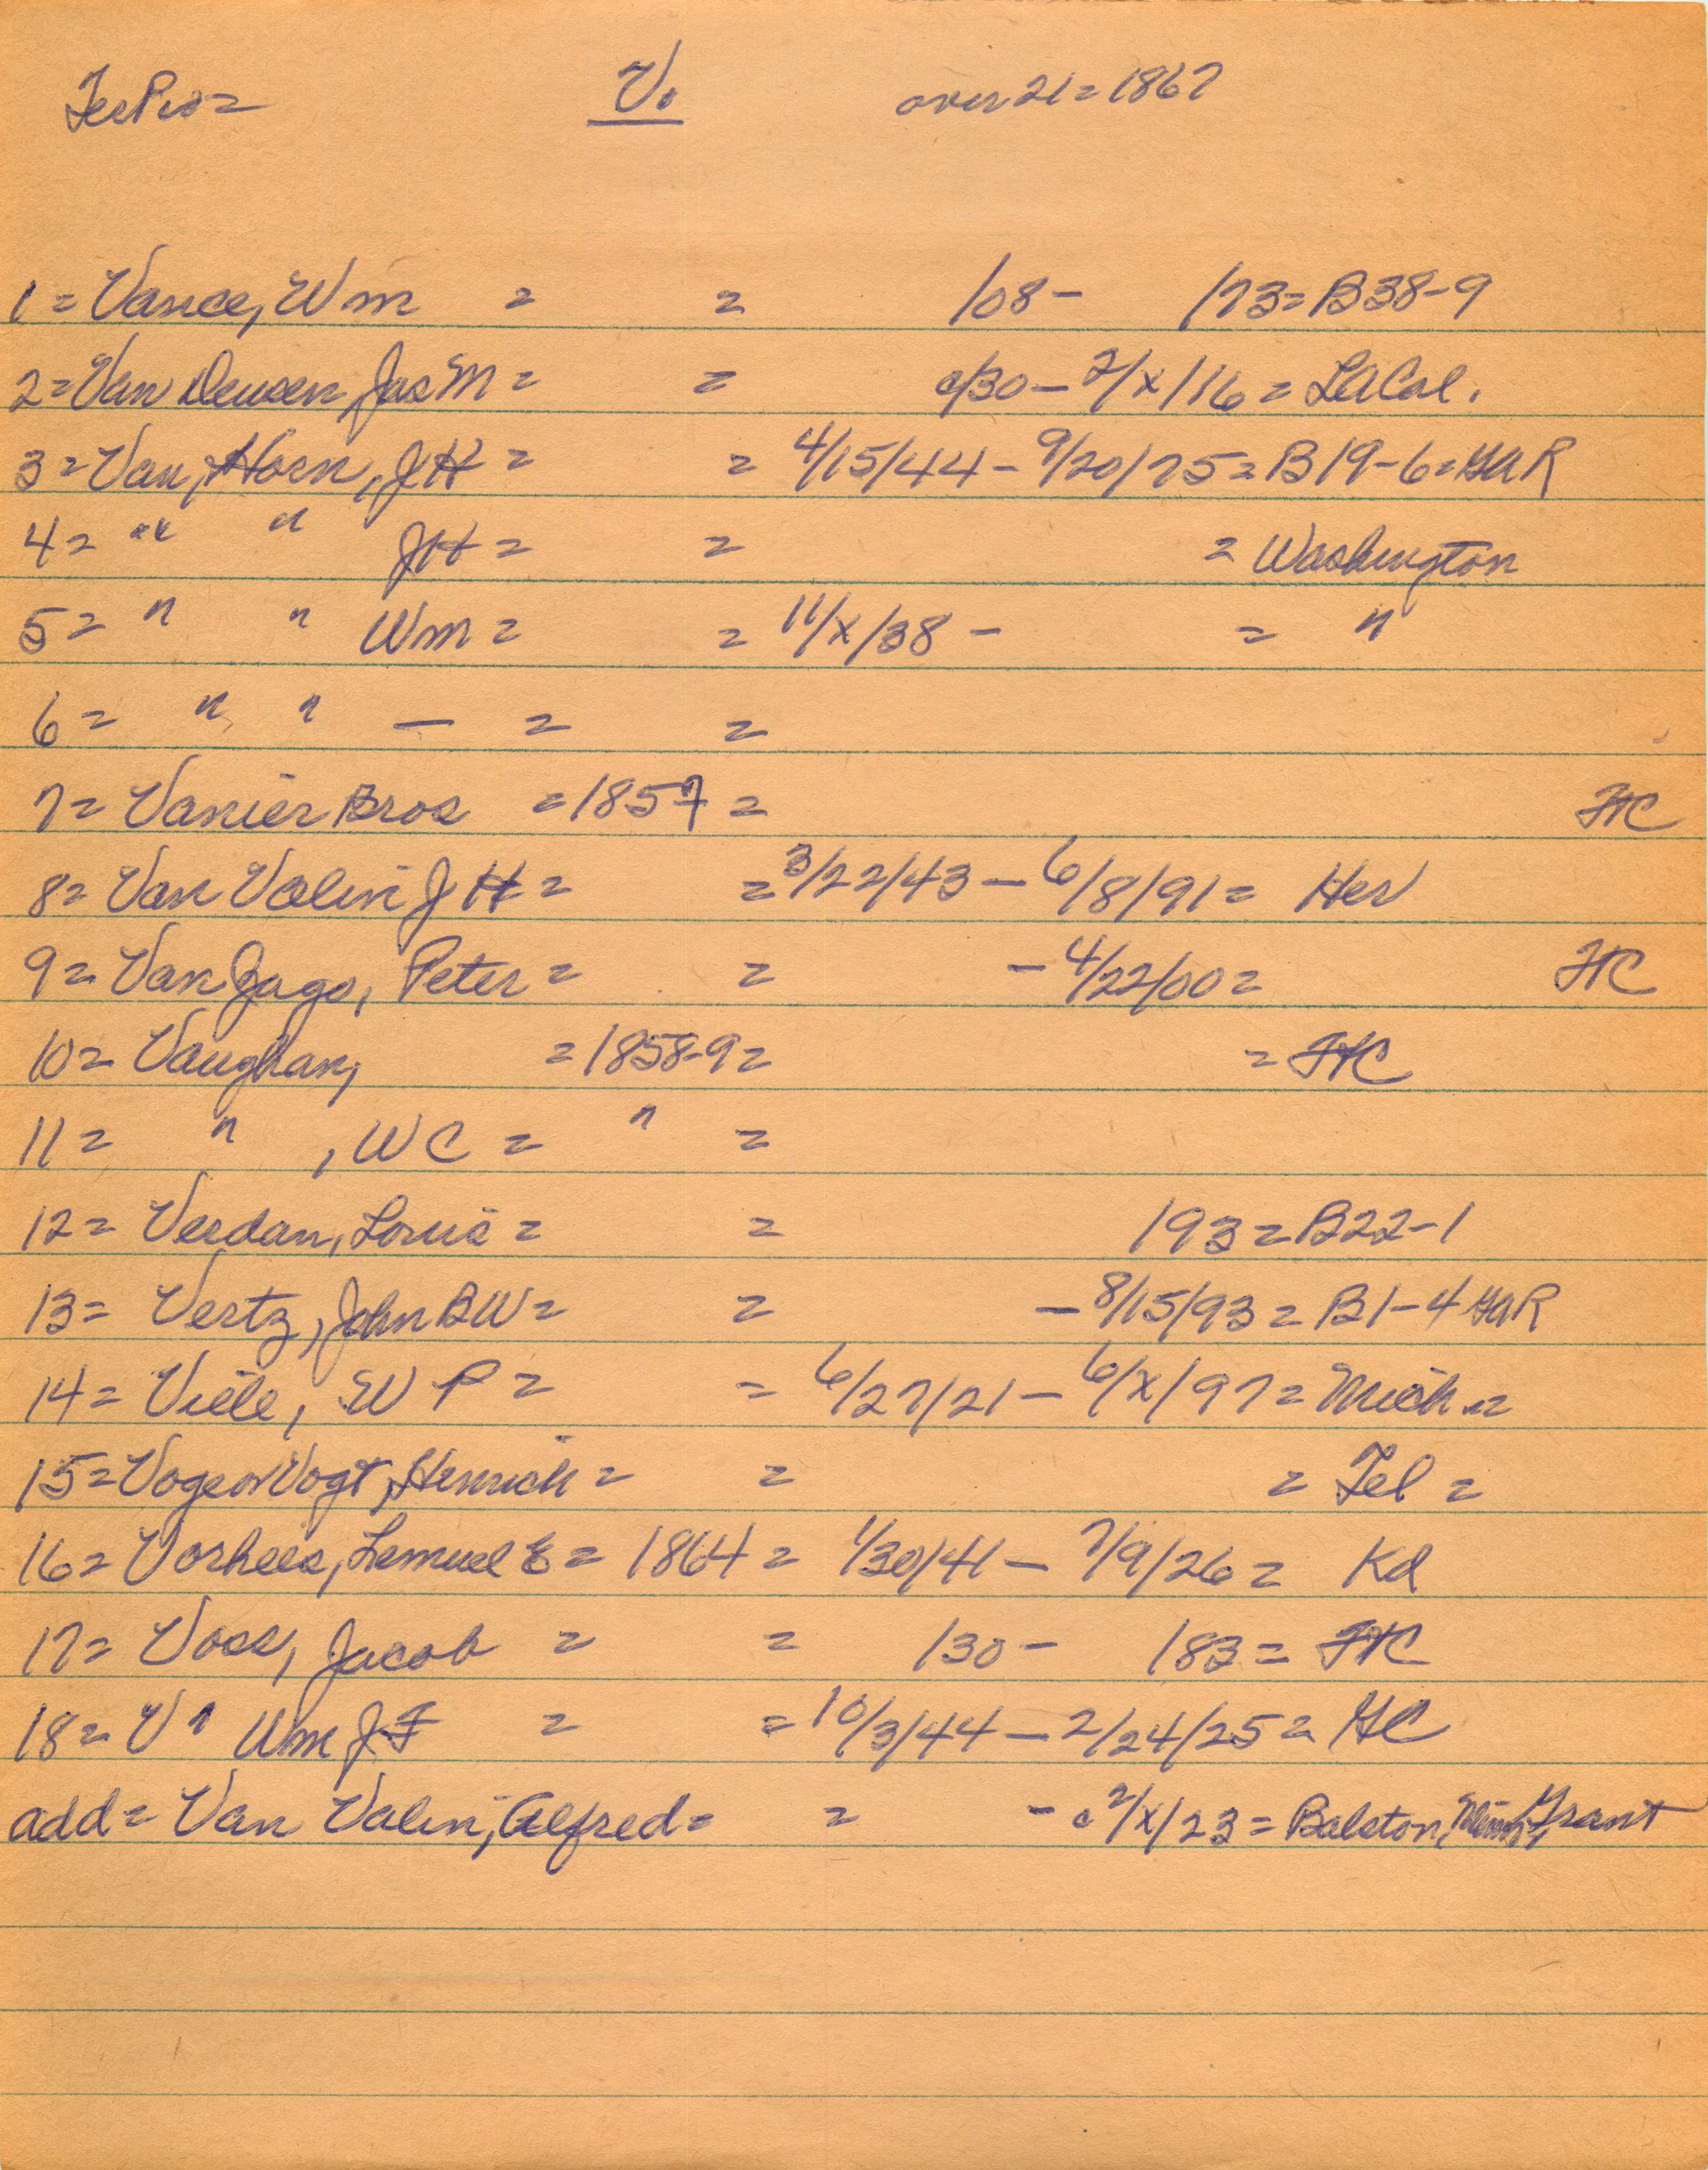 TerPio= V. over 21 = 1867
1 = Vance, Wm = = /08 - /73 = B38-9
2 = Van Deusen, Jas M = = c/30 - 2/x/16 = LACal.
3 = Van, Horn, JH = = 4/15/44 - 9/20/75 = B19-6 = GAR
4 = " " JH = = = Washington
5 = " " Wm = = 11/x/38 - = "
6 = " " — = =
7 = Vanier Bros = 1857 = FtC
8 = Van Valin JH = = 3/22/43 - 6/8/91 = Her
9 = Van Jago, Peter = = - 4/22/00 = FtC
10 = Vaughan, = 1858-9 = = FtC
11 = " , WC = " =
12 = Verdan, Louis = = 193 = B22-1
13 = Vertz, John BW = = - 8/15/93 = B1-4 GAR
14 = Viele, WP = = 6/27/21 - 6/x/97 = Mich. =
15 = Voge or Vogt, Henrich = = = Tel =
16 = Vorhees, Lemuel E = 1864 = 1/30/41 - 7/9/26 = Kd
17 = Voss, Jacob = = 130 - 183 = FtC
18 = V " Wm JF = = 10/3/44 - 2/24/25 = GC
add = Van Valin, Alfred = = - c 2/x/23 = Balaton, Minn, Grant